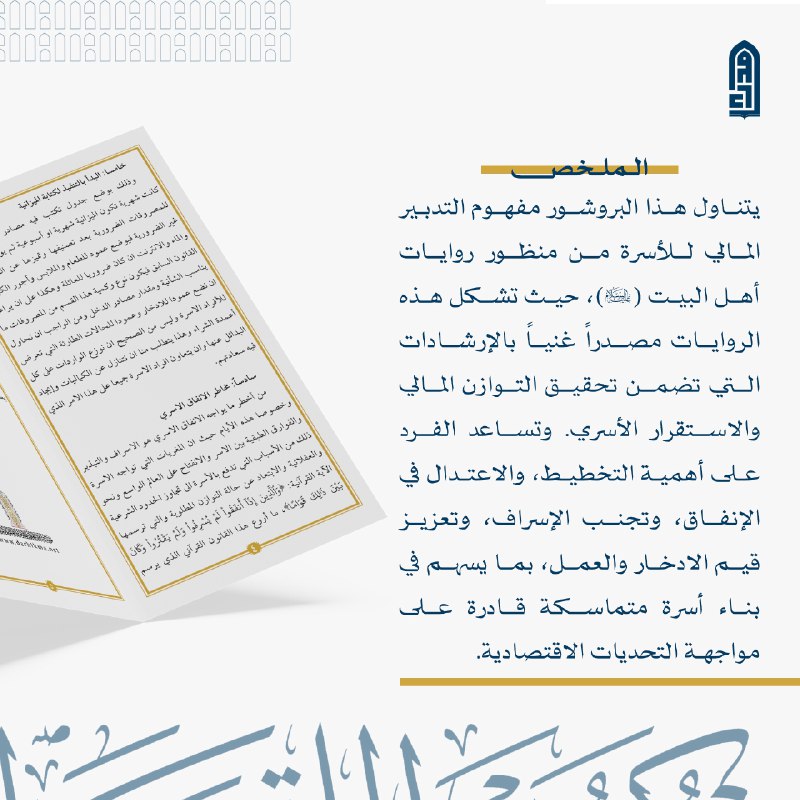 الملخص
يتناول هذا البروشور مفهوم التدبير
المالي للأسرة من منظور روايات
أهل البيت (عليهم السلام)، حيث تشكل هذه
الروايات مصدراً غنياً بالإرشادات
التي تضمن تحقيق التوازن المالي
والاستقرار الأسري. وتساعد الفرد
على أهمية التخطيط، والاعتدال في
الإنفاق، وتجنب الإسراف، وتعزيز
قيم الادخار والعمل، بما يسهم في
بناء أسرة متماسكة قادرة على
مواجهة التحديات الاقتصادية.
خامسا: البدأ بالتنفيذ لكتابة الميزانية
وذلك بوضع جدول تكتب فيه مصادر
كانت شهرية تكون الميزانية شهرية او أسبوعية ثم
للمصروفات الضرورية بعد تصنيفها وفرزها عن
غير الضرورية فيوضع عمود للطعام والملابس وأجور
والماء والانترنت ان كان ضروريا للعائلة وهكذا على ان
القانون السابق فيكون نوع وكمية هذا القسم من المصروفات
يناسب الشأنية ومقدار مصادر الدخل ومن الراجب ان نحاول
ان نضع عمودا للادخار وعمودا للحالات الطارئة التي تعرض
للأفراد الاسرة وليس من الصحيح ان توزع الواردات على كل
أعمدة الشراء وهذا يتطلب منا ان نتنازل عن الكماليات وإيجاد
البدائل عنها وان يتعاون افراد الاسرة جميعا على هذا الامر الذي
فيه سعادتهم.
سادسا: مخاطر الانفاق الاسري
من أخطر ما يواجه الانفاق الاسري هو الاسراف والتبذير
وخصوصا هذه الأيام حيث ان المغريات التي تواجه الاسرة
والفوارق الطبقية بين الأسر والانفتاح على العالم الواسع ونحو
ذلك من الأسباب التي تدفع بالأسرة الى تجاوز الحدود الشرعية
والعقلائية والابتعاد عن حالة التوازن المطلوبة والتي ترسمها
الآية القرآنية: ﴿وَالَّذِينَ إِذَا أَنفَقُوا لَمْ يُسْرِفُوا وَلَمْ يَقْتُرُوا وَكَانَ
بَيْنَ ذَلِكَ قَوَامًا﴾، ما أروع هذا القانون القرآني الذي يرسم